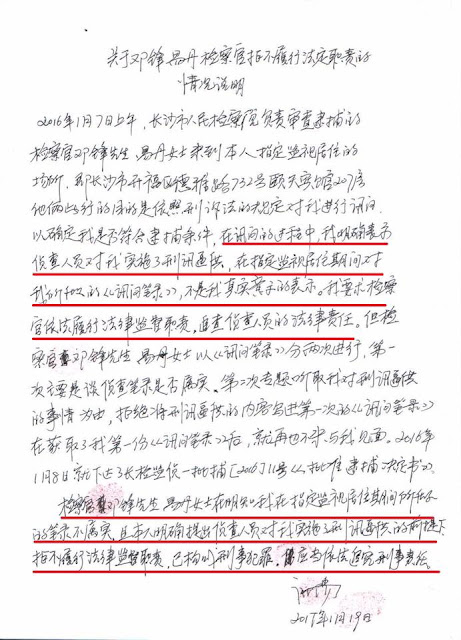 关于邓锋易丹检察官拒不履行法定职责的
情况说明
2016年1月7日上午，长沙市人民检察院负责审查逮捕的
检察官邓锋先生、易丹女士来到本人指定监视居住的
场所，即长沙市开福区德雅路732号颐天宾馆207房
他俩此行的目的是依照刑诉法的规定对我进行讯问，
以确定我是否符合逮捕条件，在讯问的过程中，我明确表示
侦查人员对我实施了刑讯逼供，在指定监视居住期间对
我所做的《讯问笔录》，不是我真实意思的表示。我要求检察
官依法履行法律监督职责，追查侦查人员的法律责任。但检
察官邓锋先生、易丹女士以《讯问笔录》分两次进行，第一
次主要是谈侦查笔录是否属实，第二次专题听取我对刑讯逼供
的事情为由，拒绝将刑讯逼供的内容写进第一次的《讯问笔录》
在获取了我第一份《讯问笔录》后，就再也不来与我见面。2016年
1月8日就下达了长检监侦一批捕［2016］11号《批准逮捕决定书》。
检察官邓锋先生、易丹女士在明知我在指定监视居住期间所做
的笔录不属实，且本人明确提出侦查人员对我实施了刑讯逼供的前提下，
拒不履行法律监督职责，已构成刑事犯罪，应当依法追究刑事责任。
2017年1月19日